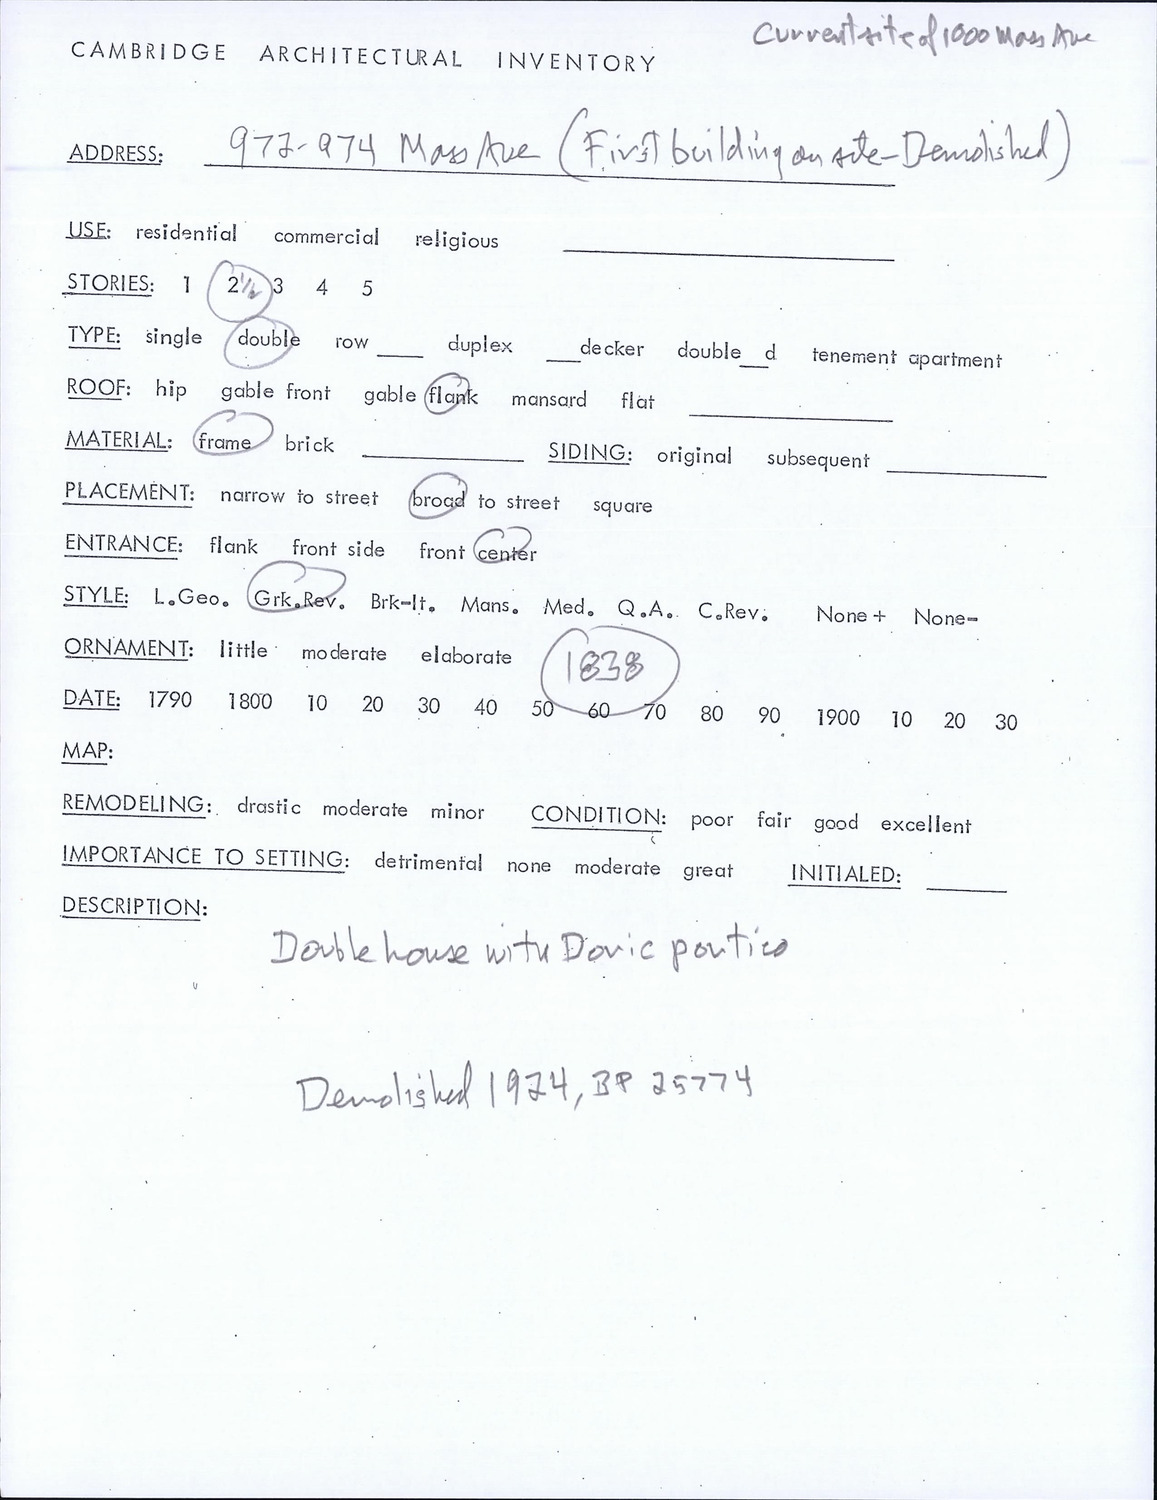 Current site of 1000 Mass Ave
CAMBRIDGE ARCHITECTURAL INVENTORY
ADDRESS: 972-974 Mass Ave (First building on site-Demolished)
USE: residential commercial religious
STORIES: 1 2½ 3 4 5
TYPE: single double row ___ duplex ___decker double__d tenement apartment
ROOF: hip gable front gable flank mansard flat
MATERIAL: frame brick SIDING: original subsequent
PLACEMENT: narrow to street broad to street square
ENTRANCE: flank front side front center
STYLE: L.Geo. Grk.Rev. Brk-It. Mans. Med. Q.A. C.Rev. None+ None-
ORNAMENT: little moderate elaborate 1838
DATE: 1790 1800 10 20 30 40 50 60 70 80 90 1900 10 20 30
MAP:
REMODELING: drastic moderate minor CONDITION: poor fair good excellent
IMPORTANCE TO SETTING: detrimental none moderate great INITIALED:
DESCRIPTION:
Double house with Doric portico
Demolished 1924, BP 25774